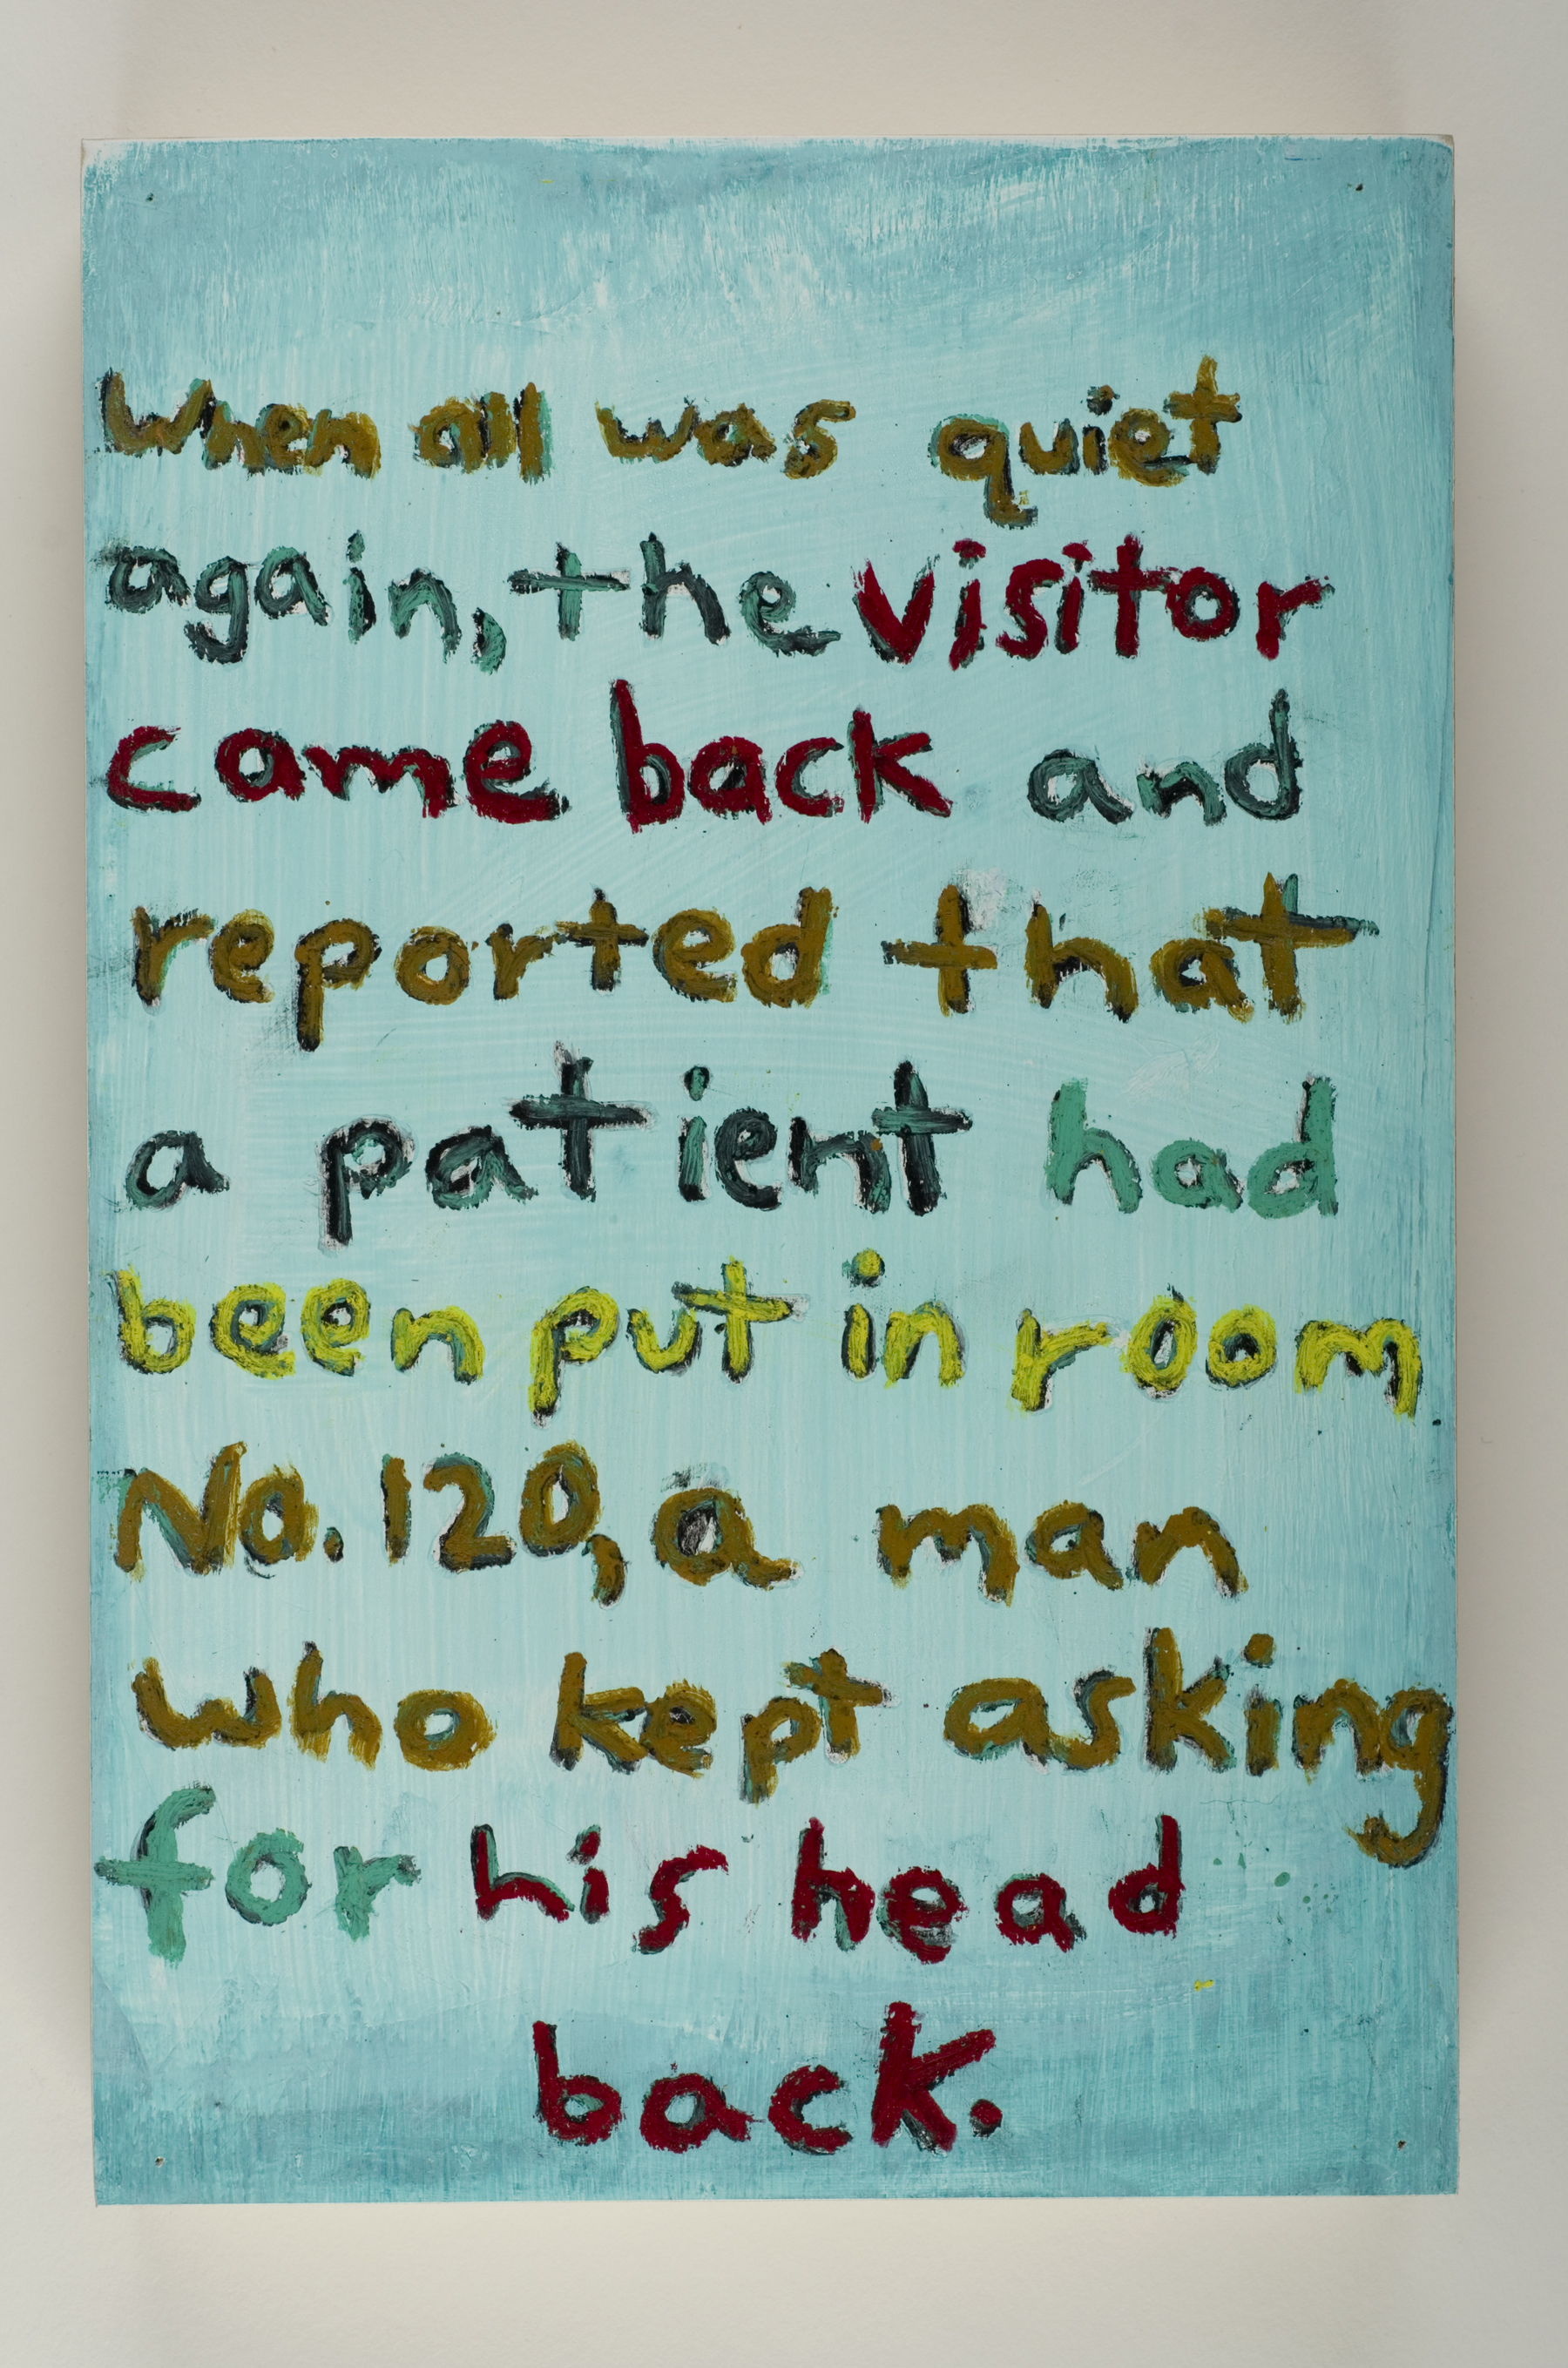 When all was quiet
again, the visitor
came back and
reported that
a patient had
been put in room
No. 120, a man
who kept asking
for his head
back.